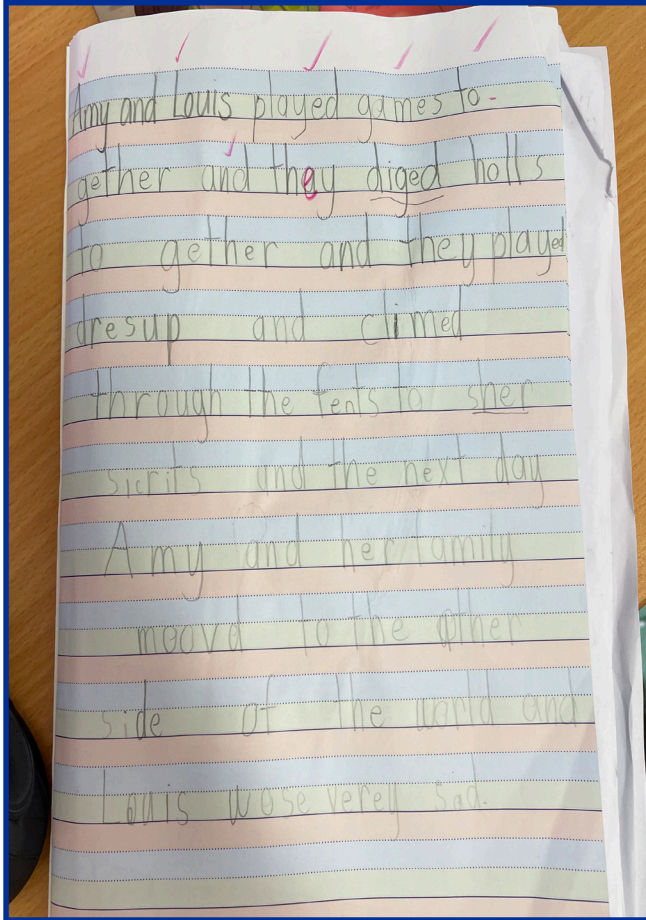 Amy and Louis played games to-
gether and they diged holls
to gether and they played
dresup and climed
through the fents to sher
sicrits and the next day
Amy and her family
moovd to the other
side of the world and
Louis wose verey sad.